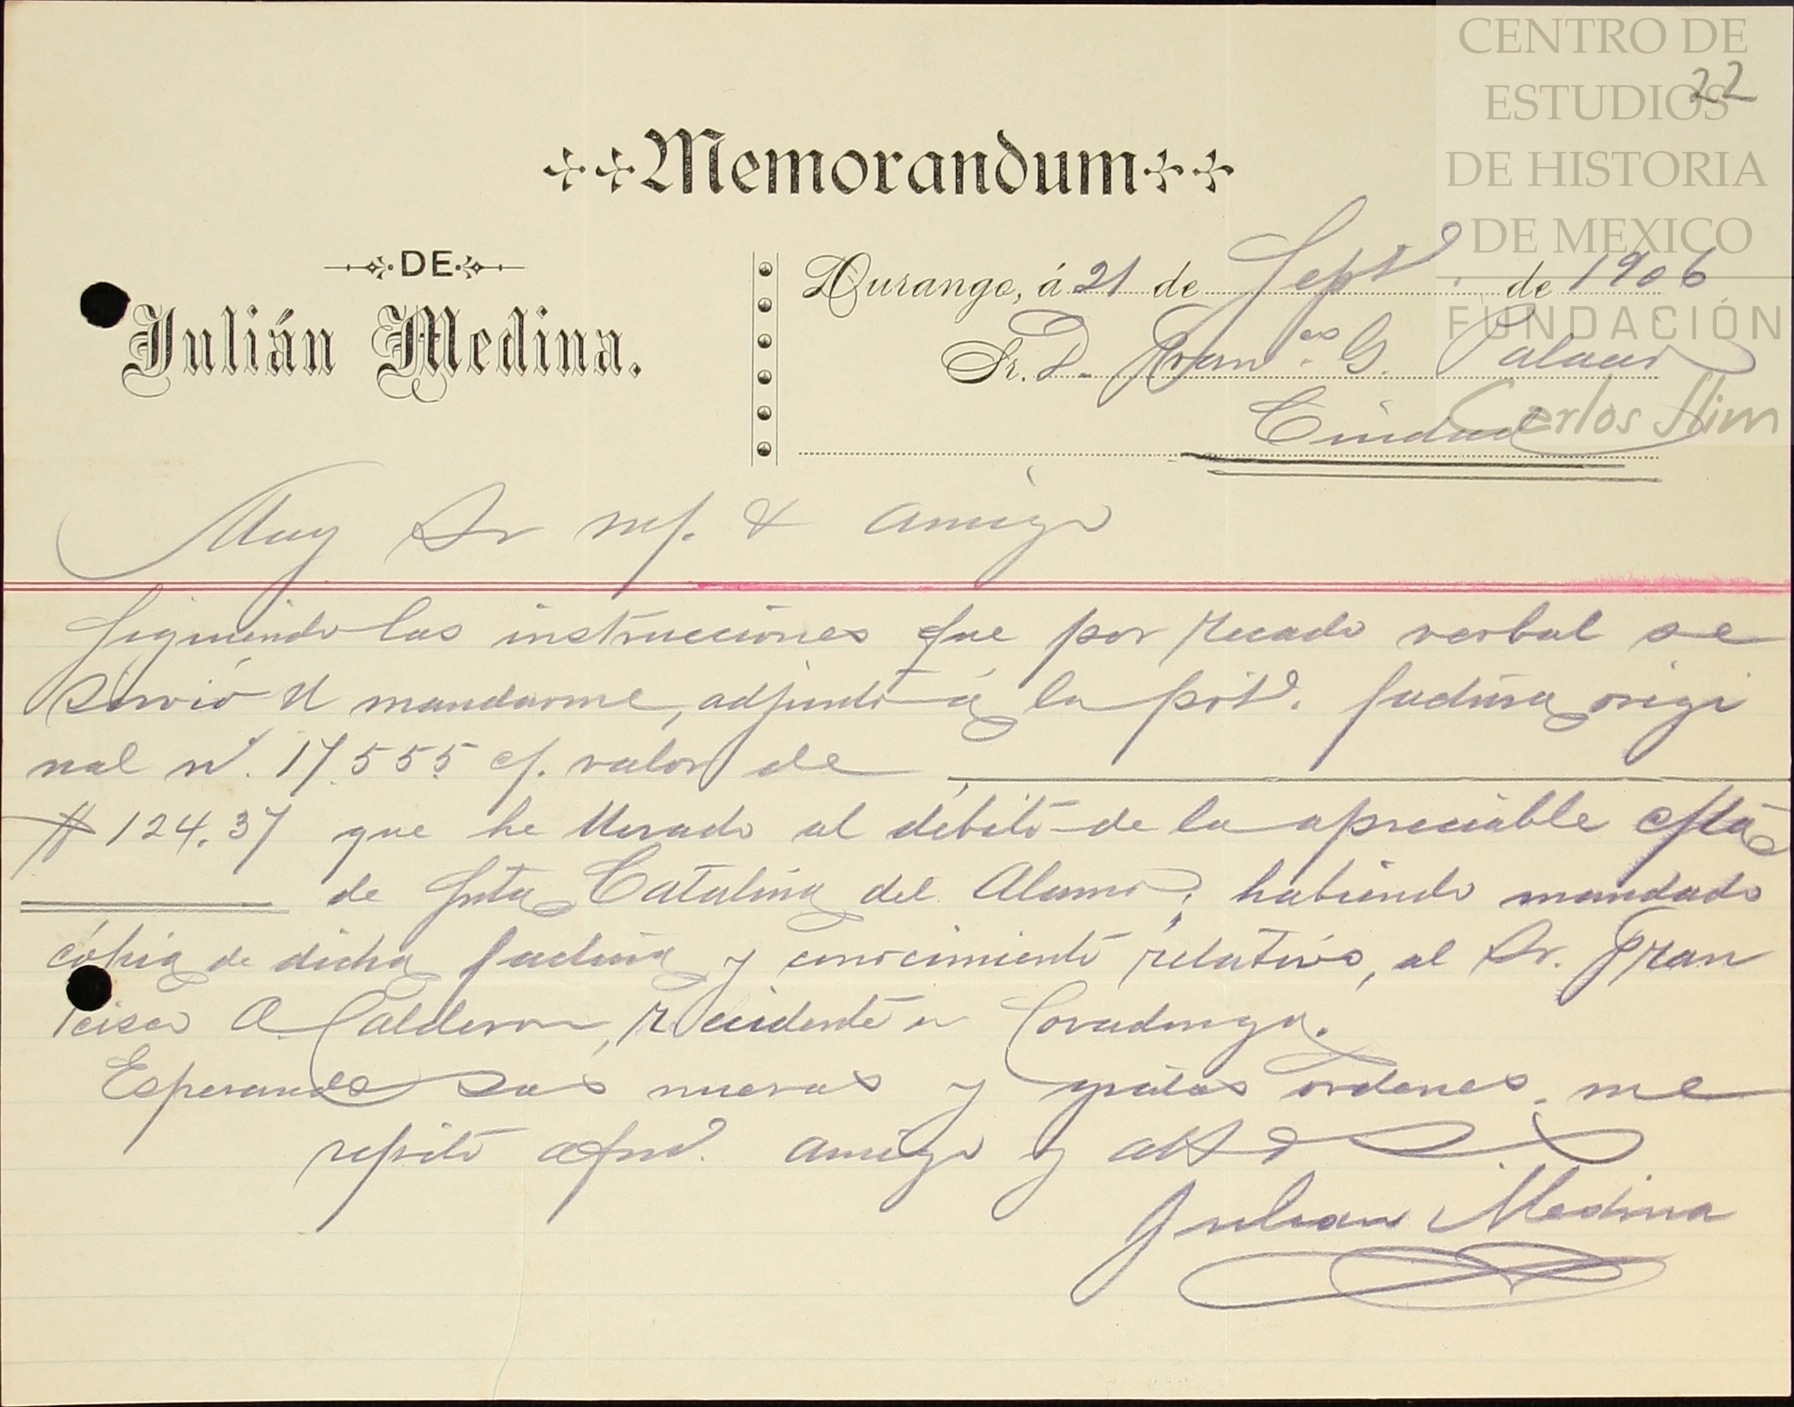 CENTRO DE
ESTUDIOS
DE HISTORIA
DE MEXICO
FUNDACIÓN
Carlos Slim
22
Memorandum
DE
Julián Medina.
Durango, á 21 de Sepre. de 1906
Sr. D. Franco. G. Palacio
Ciudad
Muy Sr m/. & amigo
Siguiendo las instrucciones que por recado verbal se
sirvió U mandarme, adjunto á la pste. factura origi
nal no. 17.555 c/. valor de
$ 124.37 que he llevado al débito de la apreciable c/ta
de Sta Catalina del Alamo; habiendo mandado
cópia de dicha factura y conocimiento relativo, al Sr. Fran
cisco A. Calderon, recidente en Covadonga.
Esperando sus nuevas y gratas ordenes, me
repito afmo. amigo y atto S S
Julian Medina